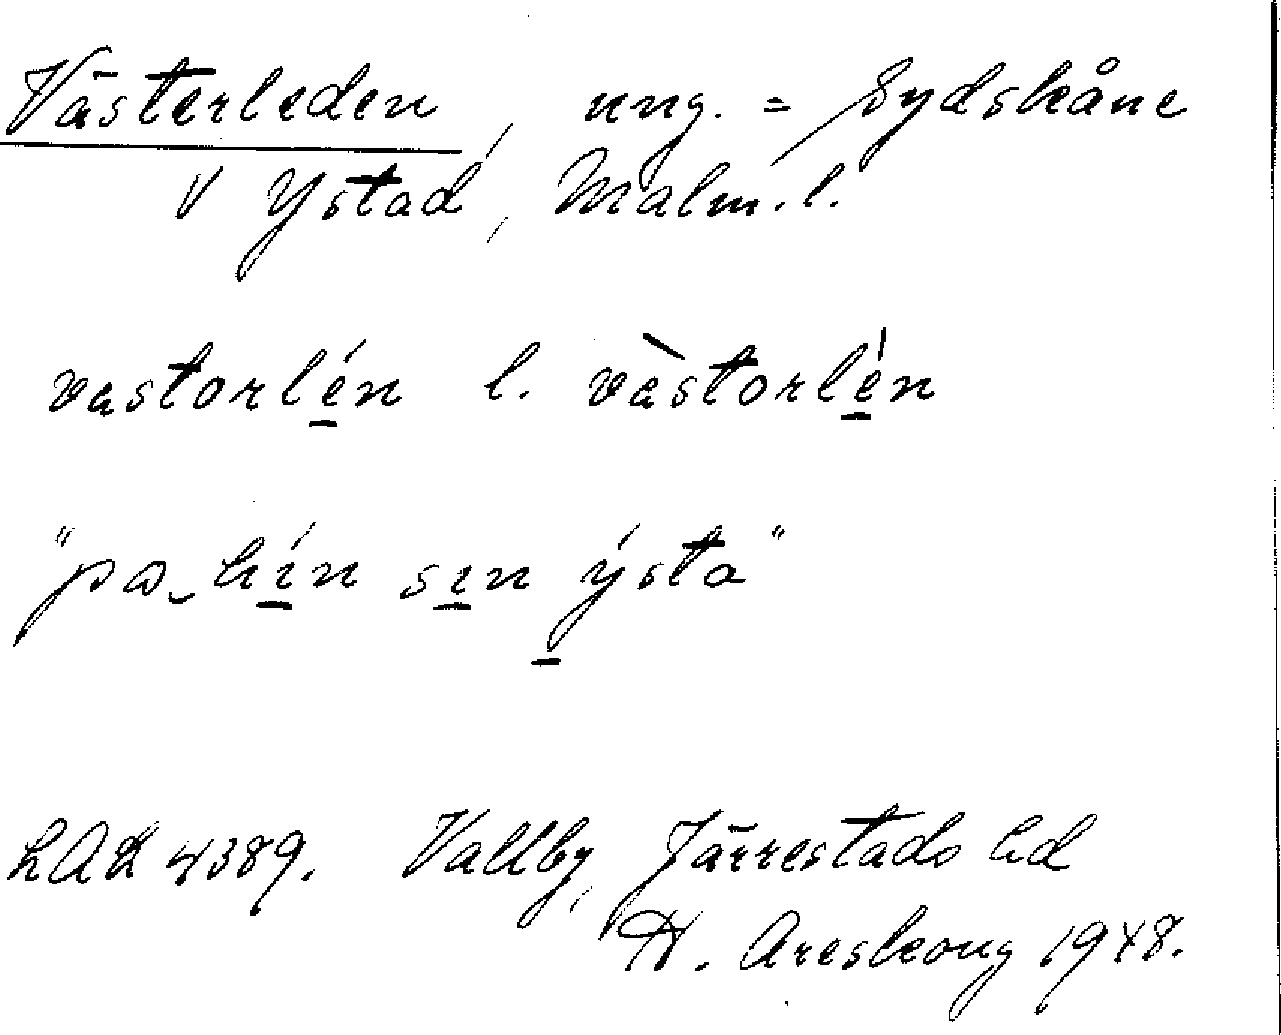 Västerleden, ung. = Sydskåne
V Ystad, Malm. l.
vastorlén l. vàstorlén
"pa hín sin ýsta"
LAL 4389. Vallby, Järrestads hd
H. Areskoug 1948.